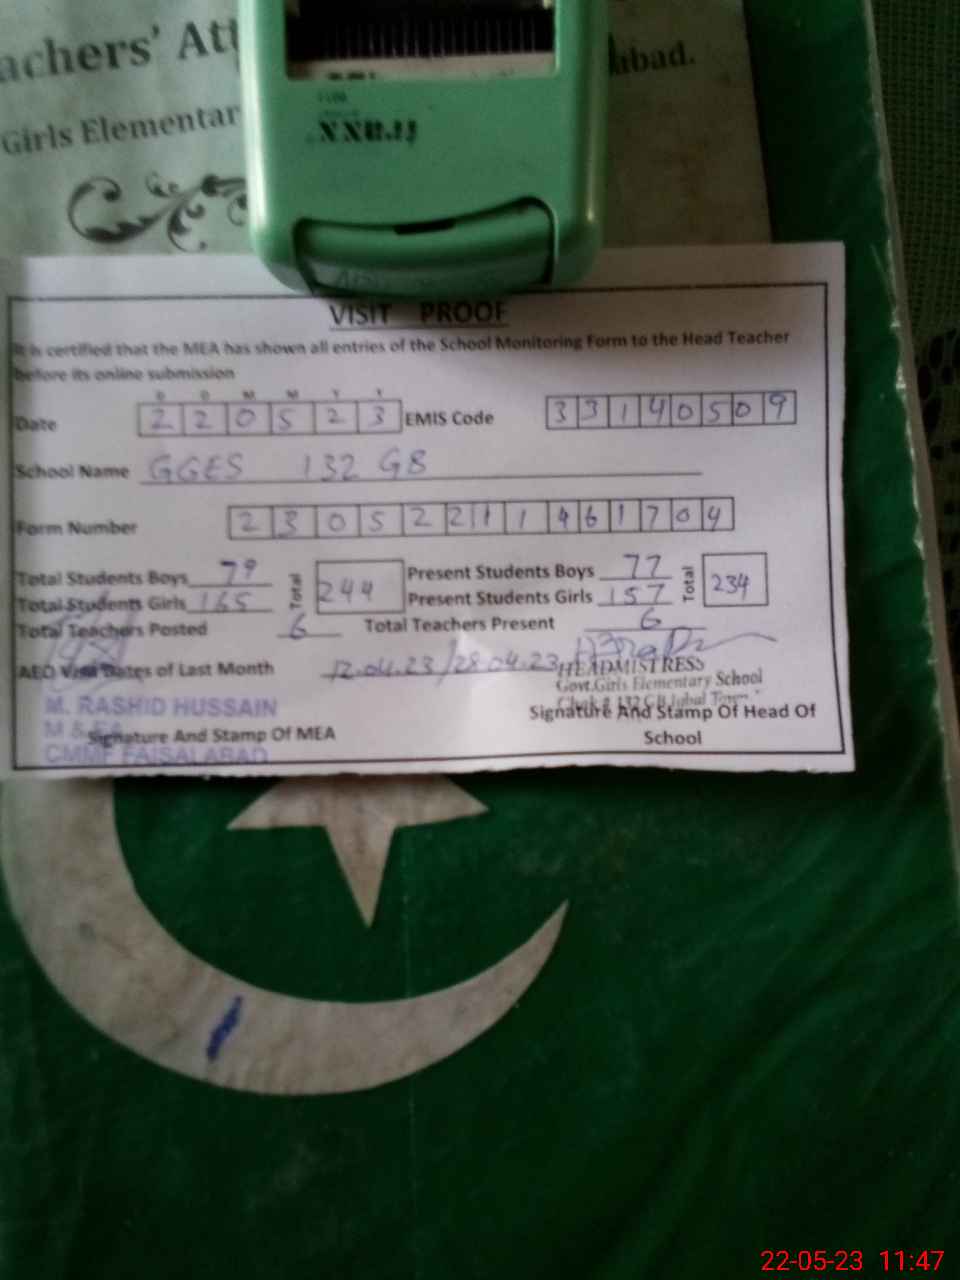 achers' Att
abad.
Girls Elementar
VISIT PROOF
It is certified that the MEA has shown all entries of the School Monitoring Form to the Head Teacher
before its online submission
D D M M Y Y
Date 2 2 0 5 2 3 EMIS Code 3 3 1 4 0 5 0 9
School Name GGES 132 GB
Form Number 2 3 0 5 2 2 1 1 1 4 6 1 7 0 4
Total Students Boys 79 Total 244 Present Students Boys 77 Total 234
Total Students Girls 165 Present Students Girls 157
Total Teachers Posted 6 Total Teachers Present 6
AEO Visit Dates of Last Month 12.04.23/28.04.23
HEADMISTRESS
Govt.Girls Elementary School
Chak # 132 GB Iqbal Town
M. RASHID HUSSAIN
M & EA
Signature And Stamp Of MEA
CMMF FAISALABAD
Signature And Stamp Of Head Of
School
22-05-23 11:47